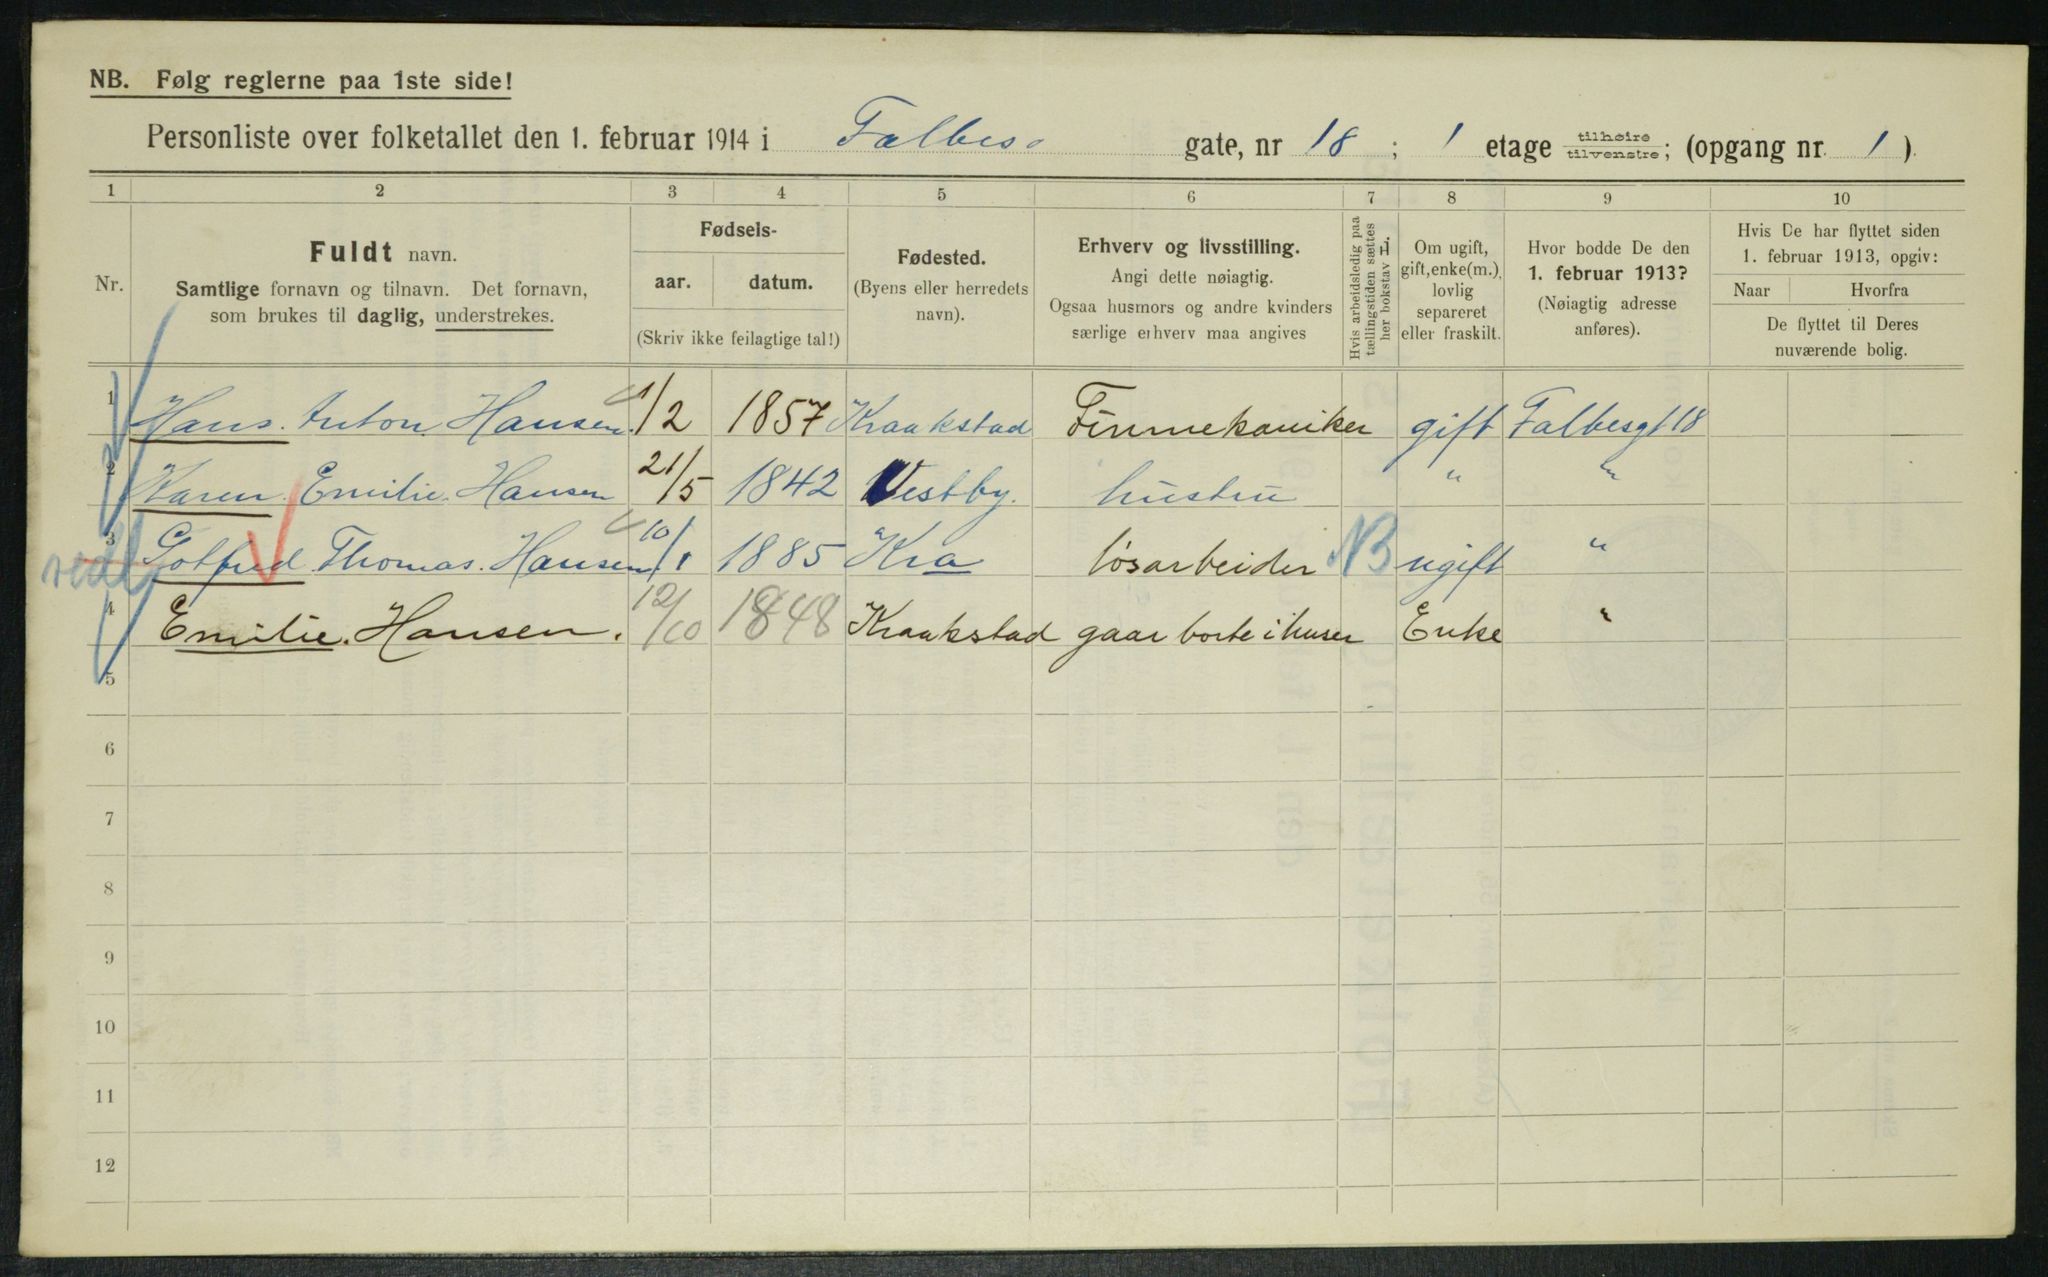 NB. Følg reglerne paa 1ste side!
Personliste over folketallet den 1. februar 1914 i Falbes gate, nr 18 ; 1 etage tilhøire tilvenstre; (opgang nr. 1).
1 2 3 4 5 6 7 8 9 10
Nr.
Fuldt navn.
Samtlige fornavn og tilnavn. Det fornavn,
som brukes til daglig, understrekes.
Fødsels-
aar. datum.
(Skriv ikke feilagtige tal!)
Fødested.
(Byens eller herredets
navn).
Erhverv og livsstilling.
Angi dette nøiagtig.
Ogsaa husmors og andre kvinders
særlige erhverv maa angives
Hvis arbeidsledig paa
tællingstiden sættes
her bokstav H.
Om ugift,
gift, enke(m.),
lovlig
separeret
eller fraskilt.
Hvor bodde De den
1. februar 1913?
(Nøiagtig adresse
anføres).
Hvis De har flyttet siden
1. februar 1913, opgiv:
Naar Hvorfra
De flyttet til Deres
nuværende bolig.
1 Hans. Anton. Hansen 1/2 1857 Kraakstad Finmekaniker gift Falbesgt 18
2 Karen. Emilie. Hansen 21/5 1842 Vestby. hustru " "
3 Gotfred Thomas. Hansen 10/1 1885 Kra løsarbeider NB ugift "
4 Emilie. Hansen. 12/10 1848 Kraakstad gaar borte i huser Enke "
5
6
7
8
9
10
11
12